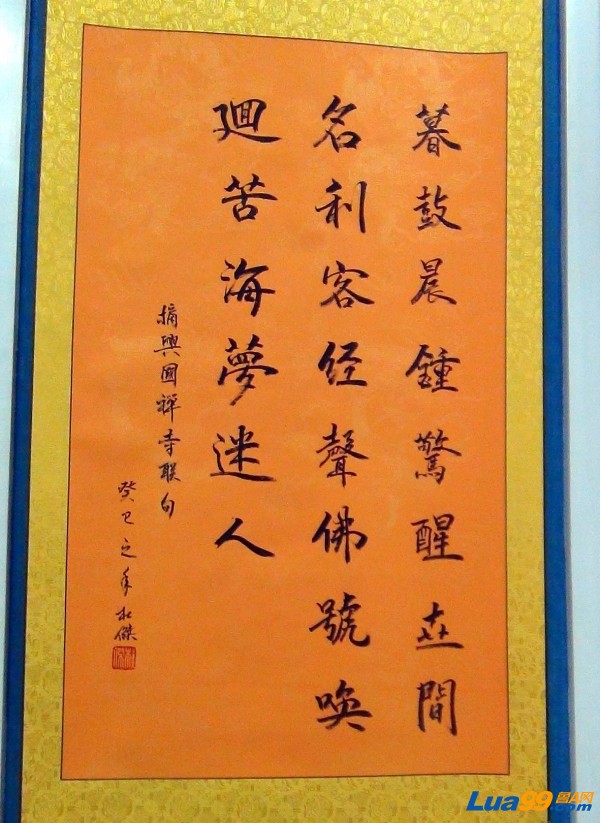 暮鼓晨鍾驚醒世間
名利客经聲佛號喚
廻苦海夢迷人
摘興國禪寺联句
癸巳之年松傑
Lua99